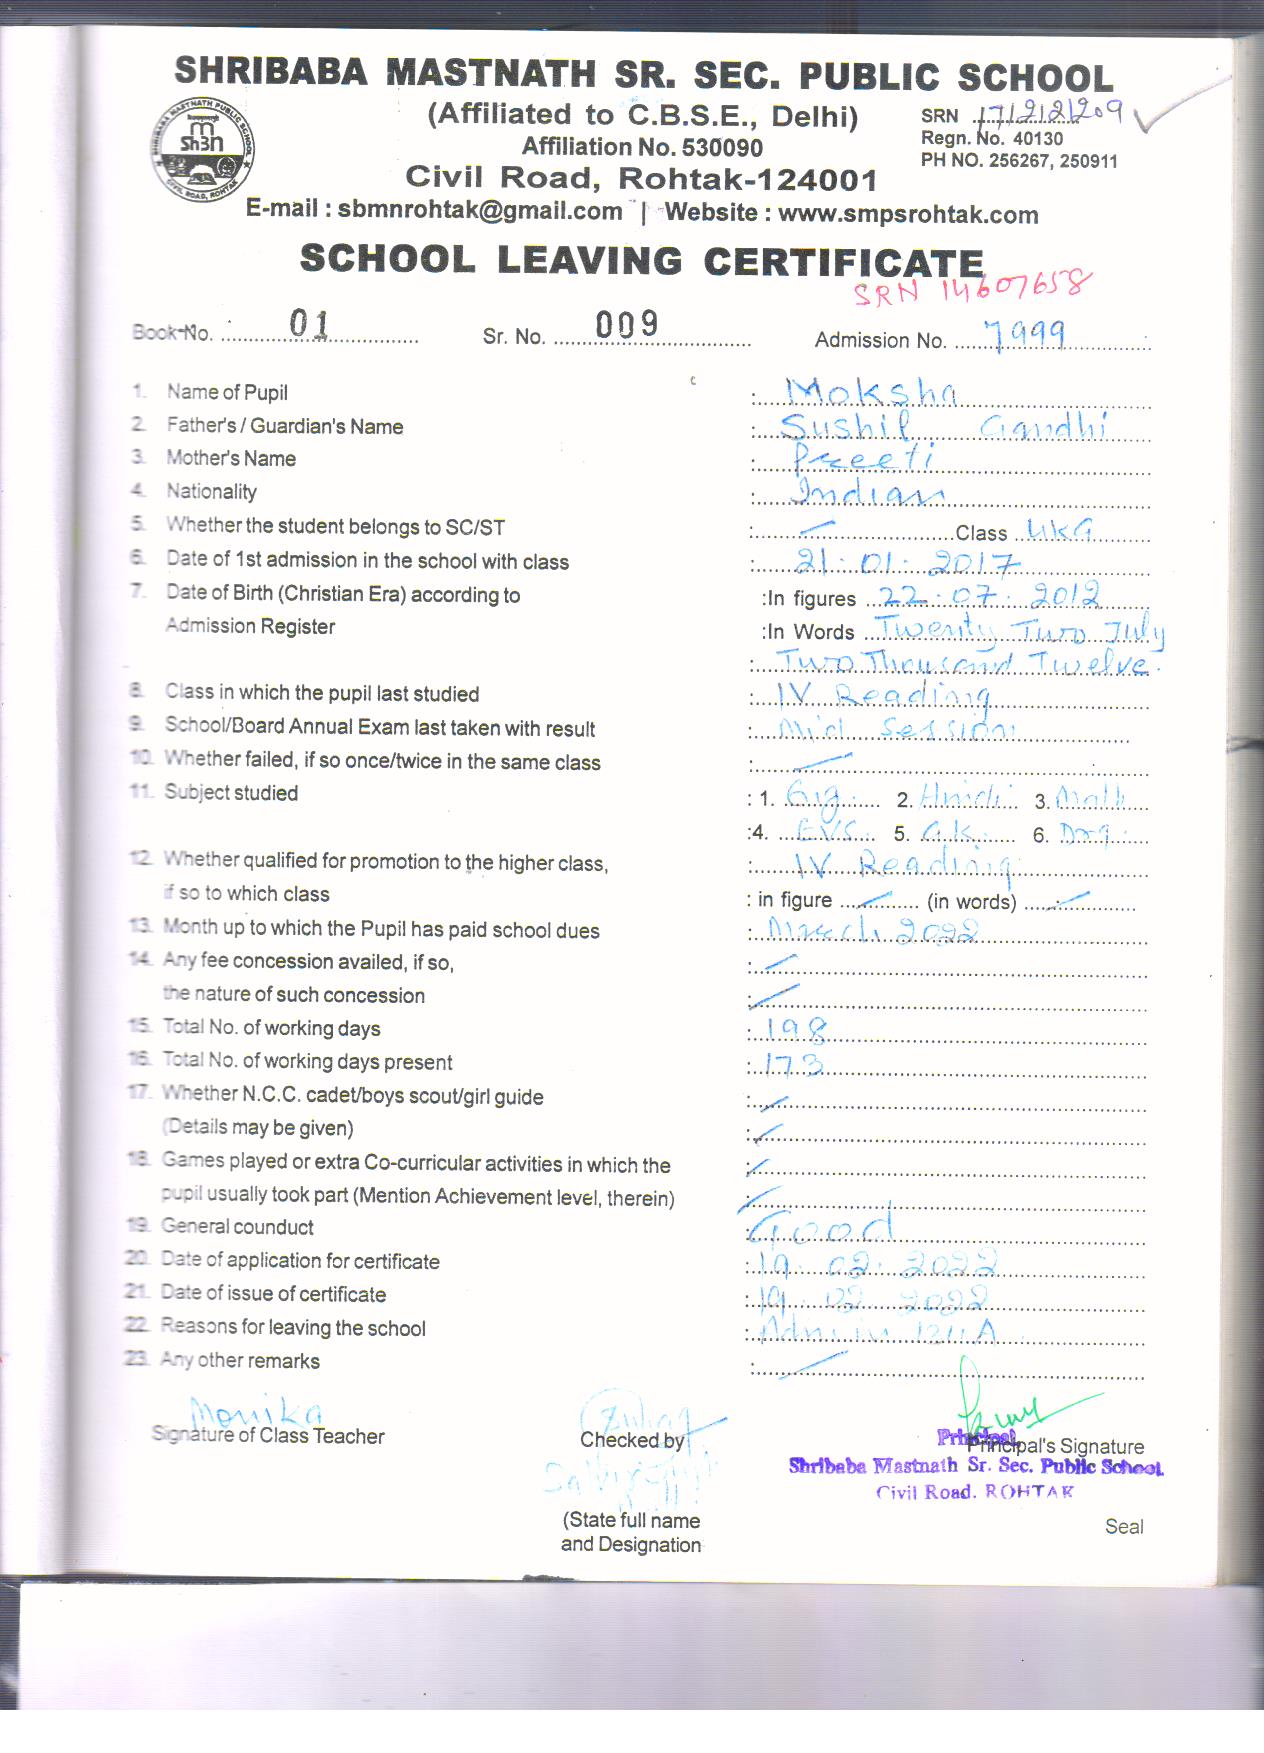 SHRIBABA MASTNATH SR. SEC. PUBLIC SCHOOL
(Affiliated to C.B.S.E., Delhi)
SRN 1712121209
Affiliation No. 530090
Regn. No. 40130
PH NO. 256267, 250911
Civil Road, Rohtak-124001
E-mail : sbmnrohtak@gmail.com | Website : www.smpsrohtak.com
SHRIBABA MASTNATH PUBLIC SCHOOL
Sh3n
CIVIL ROAD, ROHTAK
SCHOOL LEAVING CERTIFICATE
SRN 14607658
Book No. 01 Sr. No. 009 Admission No. 7999
1. Name of Pupil : Moksha
2. Father's / Guardian's Name : Sushil Gandhi
3. Mother's Name : Preeti
4. Nationality : Indian
5. Whether the student belongs to SC/ST : — Class UKG
6. Date of 1st admission in the school with class : 21.01.2017
7. Date of Birth (Christian Era) according to :In figures 22.07.2012
Admission Register :In Words Twenty Two July
: Two Thousand Twelve.
8. Class in which the pupil last studied : IV Reading
9. School/Board Annual Exam last taken with result : Mid Session
10. Whether failed, if so once/twice in the same class : —
11. Subject studied : 1. Eng. 2. Hindi 3. Math
:4. EVS 5. G.K. 6. Drg.
12. Whether qualified for promotion to the higher class, : IV Reading
if so to which class : in figure — (in words) —
13. Month up to which the Pupil has paid school dues : March 2022
14. Any fee concession availed, if so, : —
the nature of such concession : —
15. Total No. of working days : 198
16. Total No. of working days present : 173
17. Whether N.C.C. cadet/boys scout/girl guide : —
(Details may be given) : —
18. Games played or extra Co-curricular activities in which the : —
pupil usually took part (Mention Achievement level, therein) : —
19. General counduct : Good
20. Date of application for certificate : 19.02.2022
21. Date of issue of certificate : 19.02.2022
22. Reasons for leaving the school :
23. Any other remarks : —
Monika
Signature of Class Teacher
Checked by
Principal
Principal's Signature
Shribaba Mastnath Sr. Sec. Public School
Civil Road. ROHTAK
(State full name
and Designation
Seal